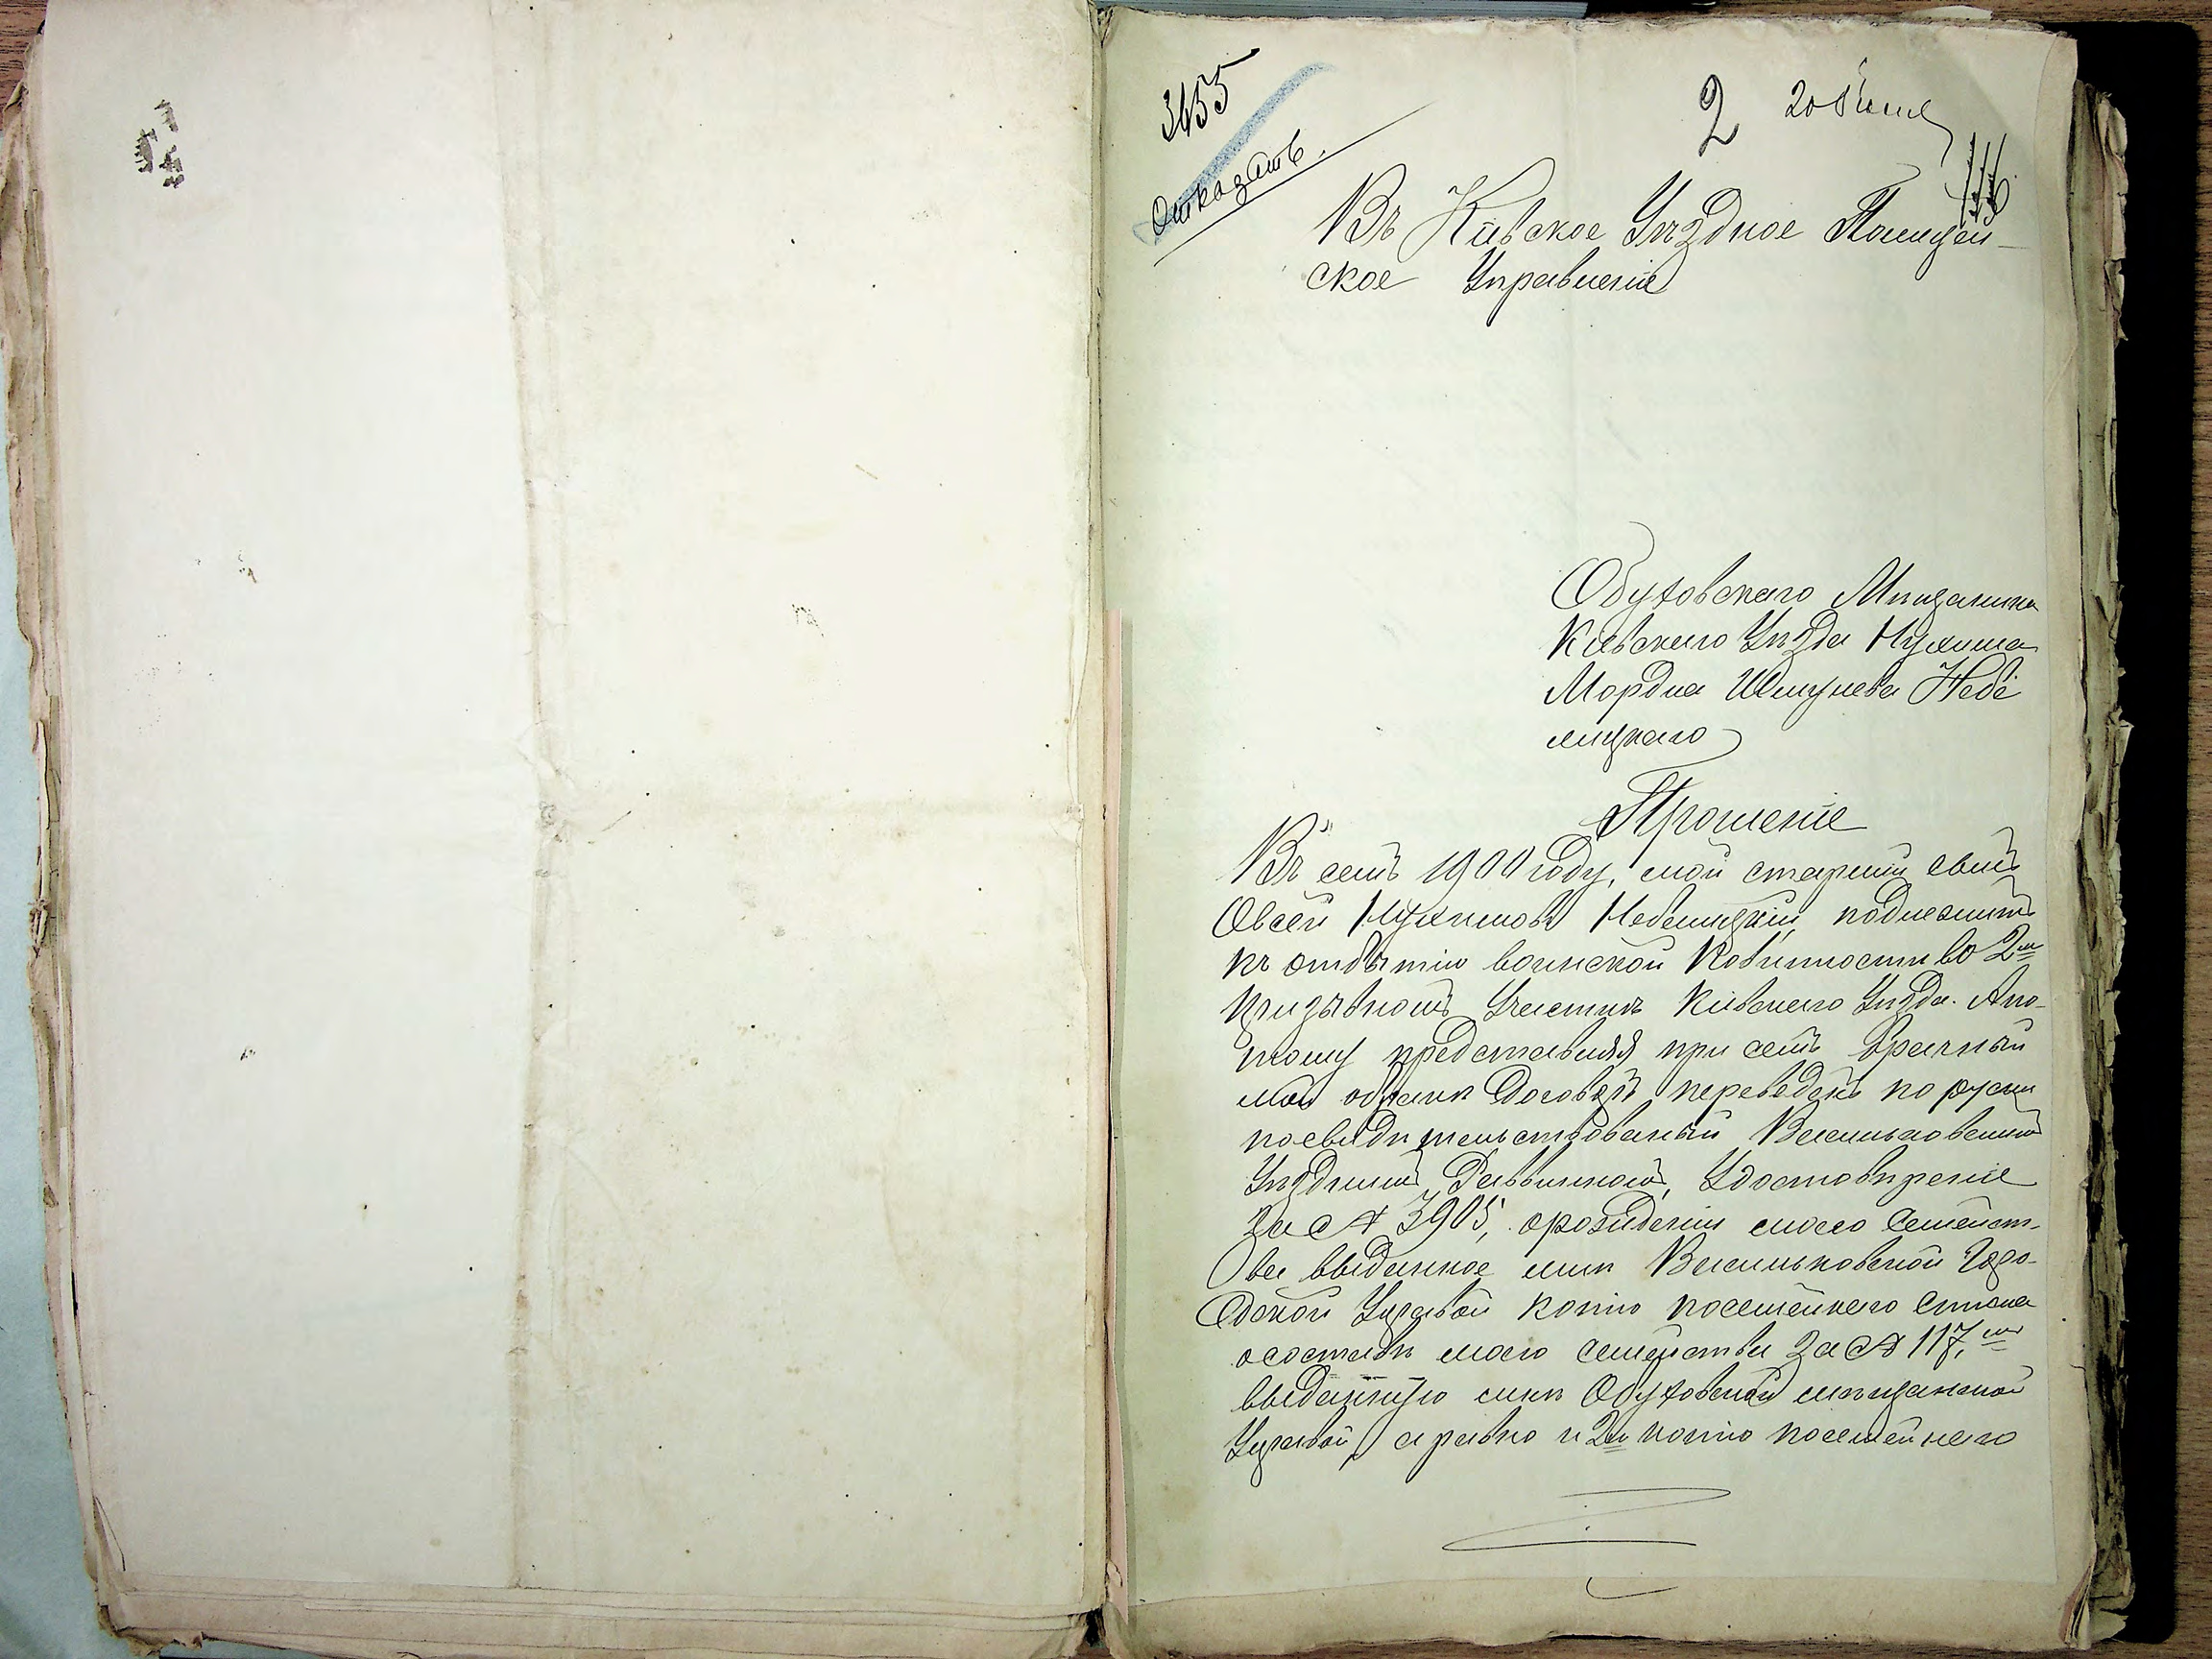 3455
Отказать.
2 20 Іюня
Въ Кіевское Уѣздное Полицей-
ское Управленіе
Обуховскаго Мѣщанина
Кіевскаго Уѣзда Нухима
Мордка Шмулева Небе
лицкаго
Прошеніе
Въ семъ 1900 году, мой старшій сынъ
Овсей Нухимовъ Небелицкій, подлежитъ
къ отбытію воинской повинности во 2мъ
призывномъ Участкѣ Кіевскаго Уѣзда. А по-
тому представляя при семъ брачный
мой договоръ переведенъ по русски
посвидѣтельствованый Васильковскимъ
Уѣзднымъ Раввиномъ, Удостовѣреніе
За № 3905, орожденіи моего Семейст-
ва выданное мнѣ Васильковской Горо-
дской Управой копію посемейнаго списка
осоставѣ моего семейства За № 117,
выданную мнѣ Обуховской мѣщанской
Управой, а равно и 2ю копію посемейнаго